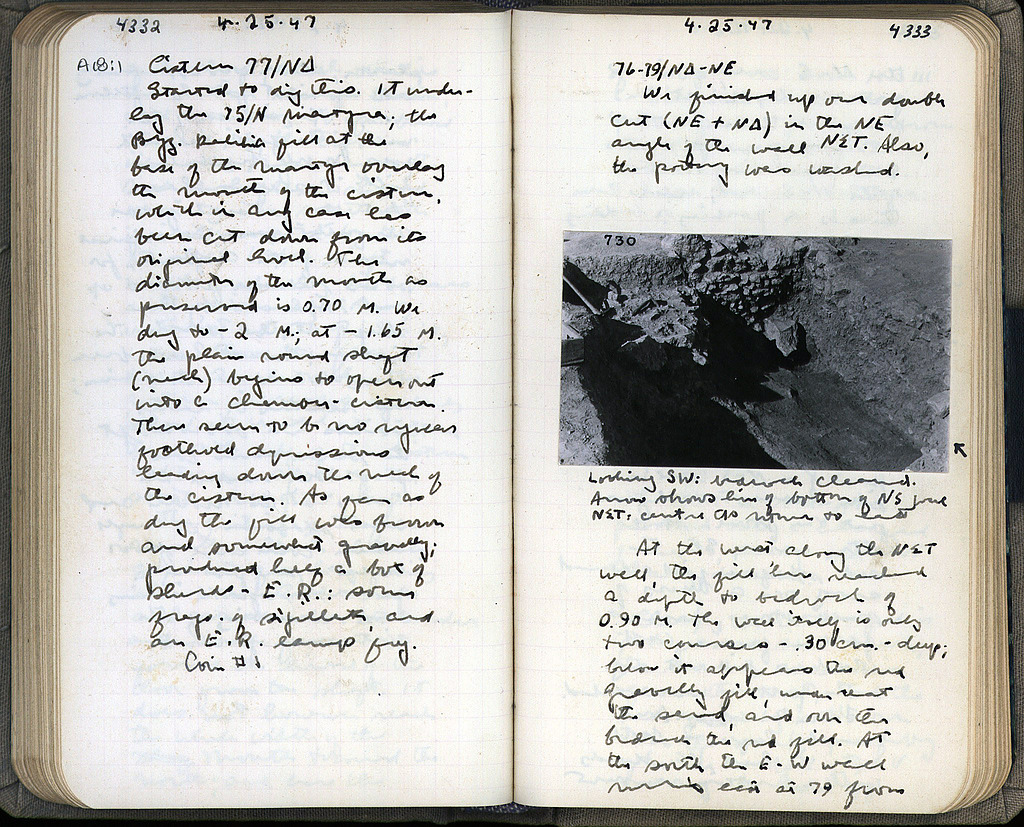 4332
4.25.47
A18:1
Cistern 77/ΝΔ
Started to dig this. It under-
lay the 75/N martyra; the
Byz. fill at the
base of the martyr overlay
the mouth of the cistern,
which in any case has
been cut down from its
original level. The
diameter of the mouth as
preserved is 0.70 M. We
dug to -2 M.; at -1.65 M.
the plain round shaft
(neck) begins to open out
into a chamber-cistern.
There seem to be no
foothold depressions
leading down the neck of
the cistern. As far as
dug the fill was brown
and somewhat gravelly;
produced half a box of
sherds - E.R.: some
frags. of sigillata, and
an E.R. lamp frg.
Coin #1
4.25.47
4333
76-79/ΝΔ-ΝΕ
We finished up our double
cut (ΝΕ + ΝΔ) in the NE
angle of the wall ΝΣΤ. Also,
the pottery was washed.
730
Looking SW: bedrock cleared.
Arrow shows line of bottom of
ΝΣΤ: centre to
At the west along the ΝΣΤ
wall, the fill here reached
a depth to bedrock of
0.90 M. The wall itself is only
two courses - .30 cm. - deep;
below it appears the red
gravelly fill, underneat
the sand, and over the
bedrock the red fill. At
the south the E-W wall
east at 79 from